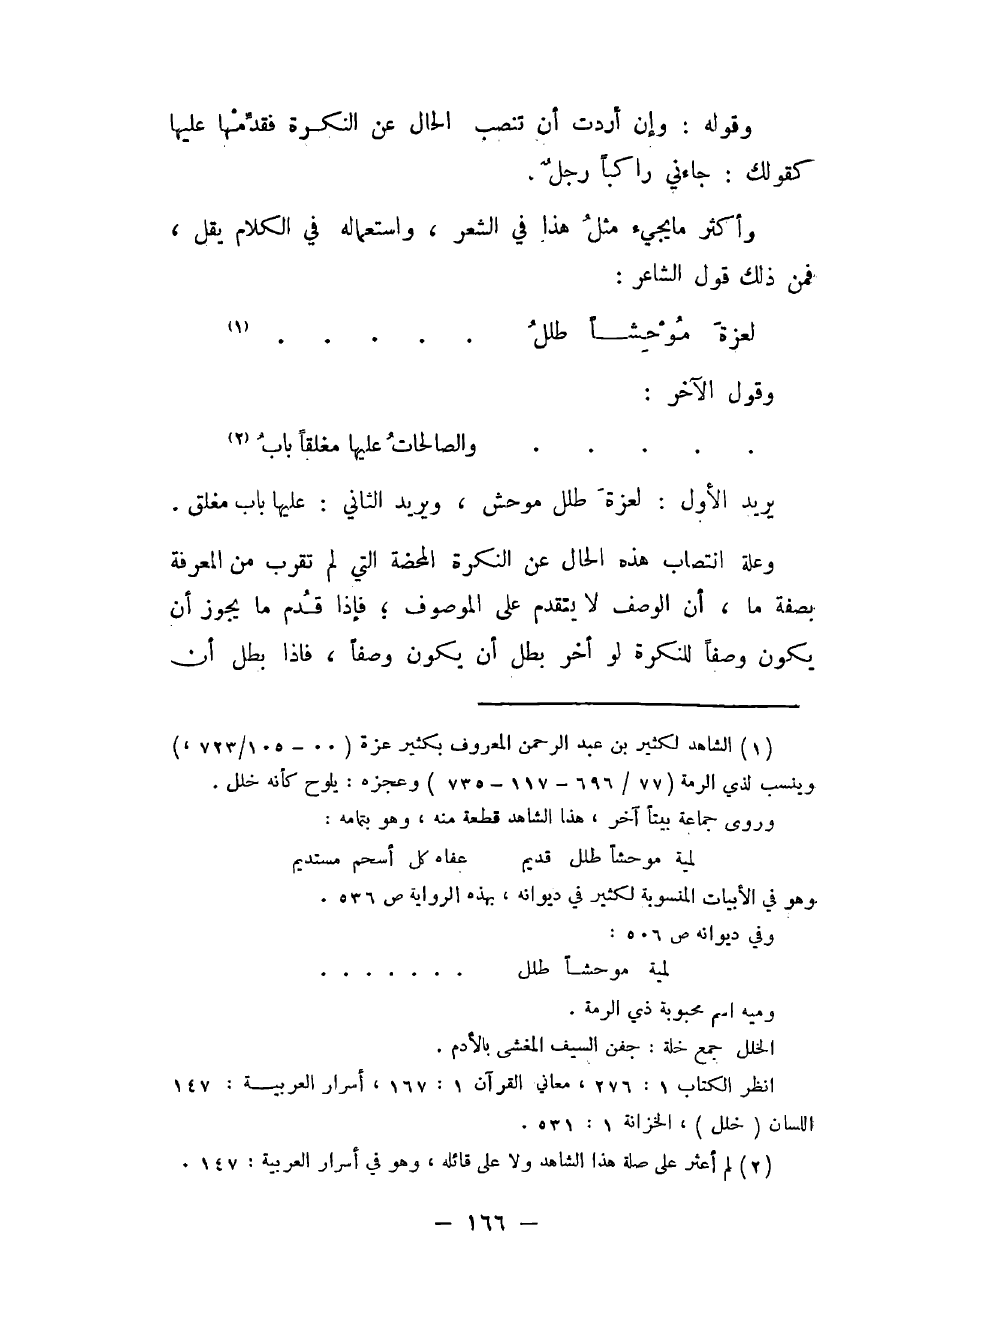 وقوله : وإن أردت أن تنصب الحال عن النكرة فقدِّمْها عليها
كقولك : جاءني راكباً رجلٌ .
وأكثر مايجيء مثلُ هذا في الشعر ، واستعماله في الكلام يقل ،
فمن ذلك قول الشاعر :
لعزةَ مُوْحِشاً طللُ . . . . . (١)
وقول الآخر :
. . . . . والصالحاتُ عليها مغلقاً بابُ (٢)
يريد الأول : لعزةَ طلل موحش ، ويريد الثاني : عليها باب مغلق .
وعلة انتصاب هذه الحال عن النكرة المحضة التي لم تقرب من المعرفة
بصفة ما ، أن الوصف لا يتقدم على الموصوف ؛ فإذا قُدم ما يجوز أن
يكون وصفاً للنكرة لو أخر بطل أن يكون وصفاً ، فاذا بطل أن
(١) الشاهد لكثير بن عبد الرحمن المعروف بكثير عزة ( ٠٠ - ٧٢٣/١٠٥ م)
وينسب لذي الرمة (٧٧ / ٦٩٦ - ١١٧ - ٧٣٥ ) وعجزه : يلوح كأنه خلل .
وروى جماعة بيتاً آخر ، هذا الشاهد قطعة منه ، وهو بتمامه :
لمية موحشاً طلل قديم عفاه كل أسحم مستديم
وهو في الأبيات المنسوبة لكثير في ديوانه ، بهذه الرواية ص ٥٣٦ .
وفي ديوانه ص ٥٠٦ :
لمية موحشاً طلل . . . . . . .
وميه اسم محبوبة ذي الرمة .
الخلل جمع خلة : جفن السيف المغشى بالأدم .
انظر الكتاب ١ : ٢٧٦ ، معاني القرآن ١ : ١٦٧ ، أسرار العربية : ١٤٧
اللسان ( خلل ) ، الخزانة ١ : ٥٣١ .
(٢) لم أعثر على صلة هذا الشاهد ولا على قائله ، وهو في أسرار العربية : ١٤٧ .
— ١٦٦ —